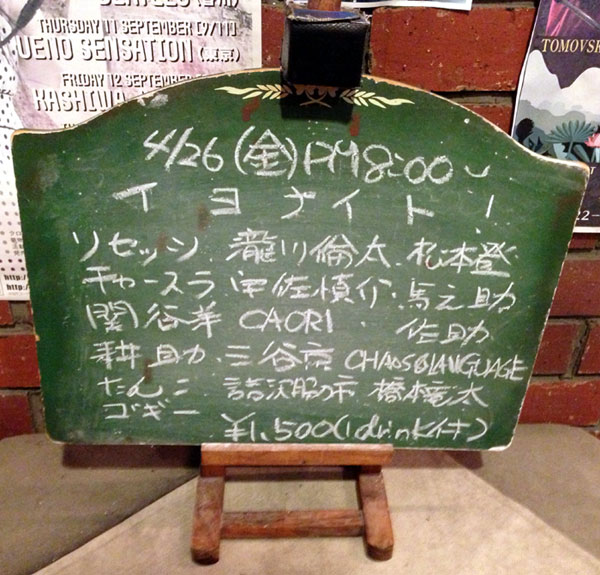 THURSDAY 11 SEPTEMBER (9/11)
UENO SENSATION (東京)
FRIDAY 12 SEPTEMBER
KASHIWA
TOMOVSK
4/26(金)PM8:00〜
イヨナイト!
リセッシ. 瀧川倫太. 松本登
チャースラ 宇佐慎介. 馬之助
関谷洋 CAORI .. 佐助
耕助. 三谷京 CHAOS&LANGUAGE
たんこ 諸沢昭市 橋本竜太
ゴギー
¥1,500(1drink付)